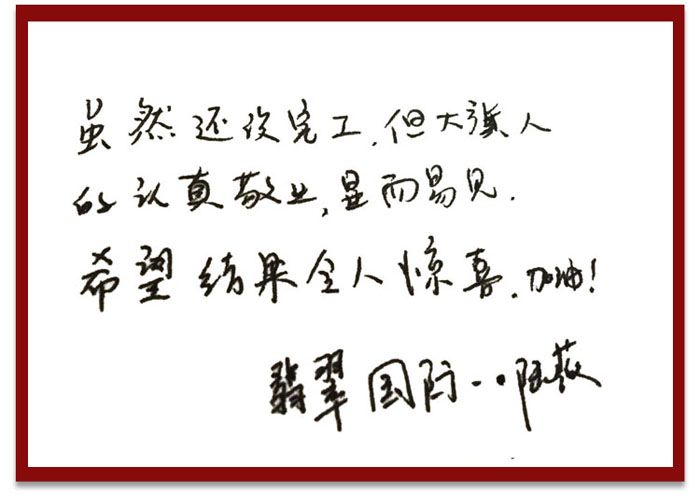 虽然还没完工，但大旗人
的认真敬业，显而易见．
希望结果令人惊喜．加油！
翡翠国际··陆薇